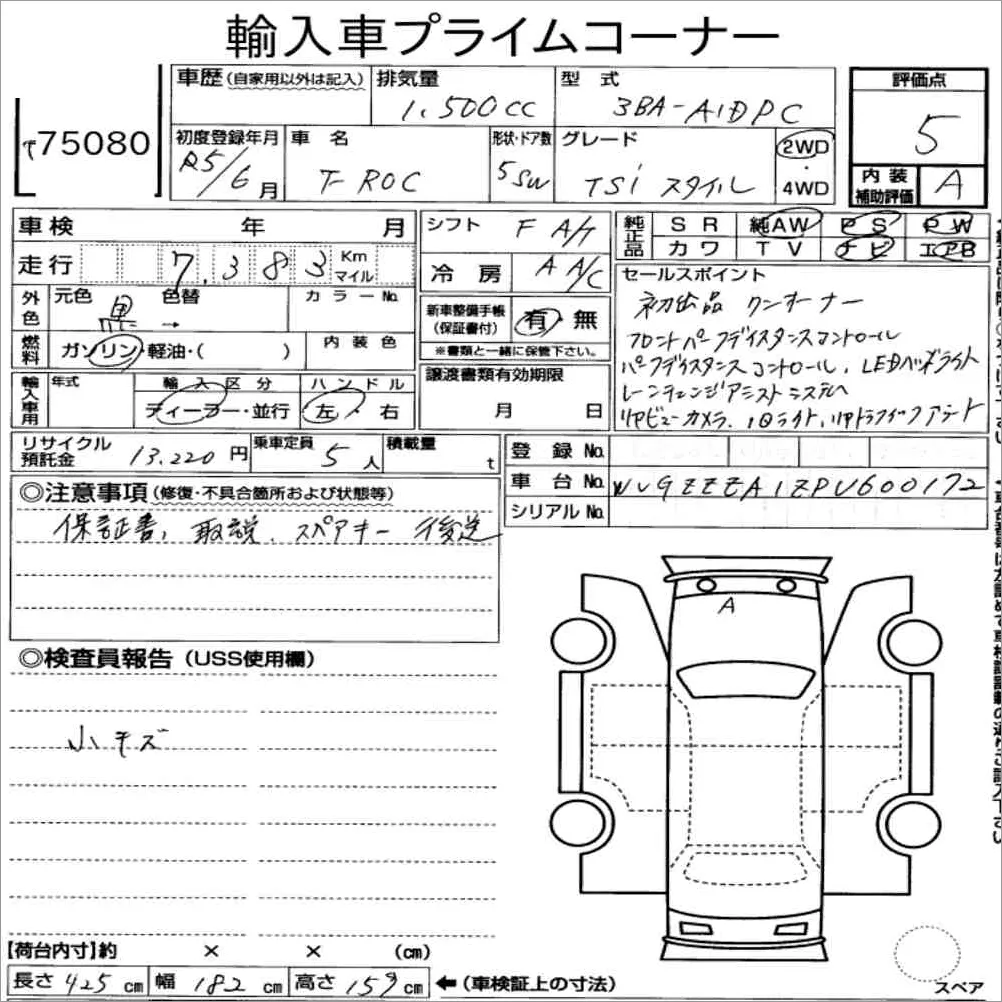 輸入車プライムコーナー
75080
車歴(自家用以外は記入) 排気量 1,500cc 型式 3BA-A1DPC 評価点 5
初度登録年月 R5/6月 車名 T-ROC 形状・ドア数 5SW グレード TSi スタイル 2WD・4WD 内装補助評価 A
車検 年 月 シフト F A/T 純正品 SR 純AW PS PW
走行 7,383 Km マイル 冷房 A A/C カワ TV ナビ エアB
外色 元色 黒 → 色替 カラーNo. 新車整備手帳(保証書付) 有・無
※書類と一緒に保管下さい。
燃料 ガソリン・軽油・( ) 内装色
セールスポイント
初出品 ワンオーナー
フロントパークディスタンスコントロール
パークディスタンスコントロール、LEDヘッドライト
レーンチェンジアシストシステム
リヤビューカメラ、IQライト、リヤトラフィックアラート
輸入車用 年式 輸入区分 ディーラー・並行 ハンドル 左・右 譲渡書類有効期限 月 日
リサイクル預託金 13,220円 乗車定員 5人 積載量 t
登録No.
車台No. WVGZZZA1ZPV600172
シリアルNo.
◎注意事項(修復・不具合箇所および状態等)
保証書、取説、スペアキー 後送
◎検査員報告(USS使用欄)
小キズ
A
スペア
【荷台内寸】約 × × (cm)
長さ 425 cm 幅 182 cm 高さ 159 cm ←(車検証上の寸法)